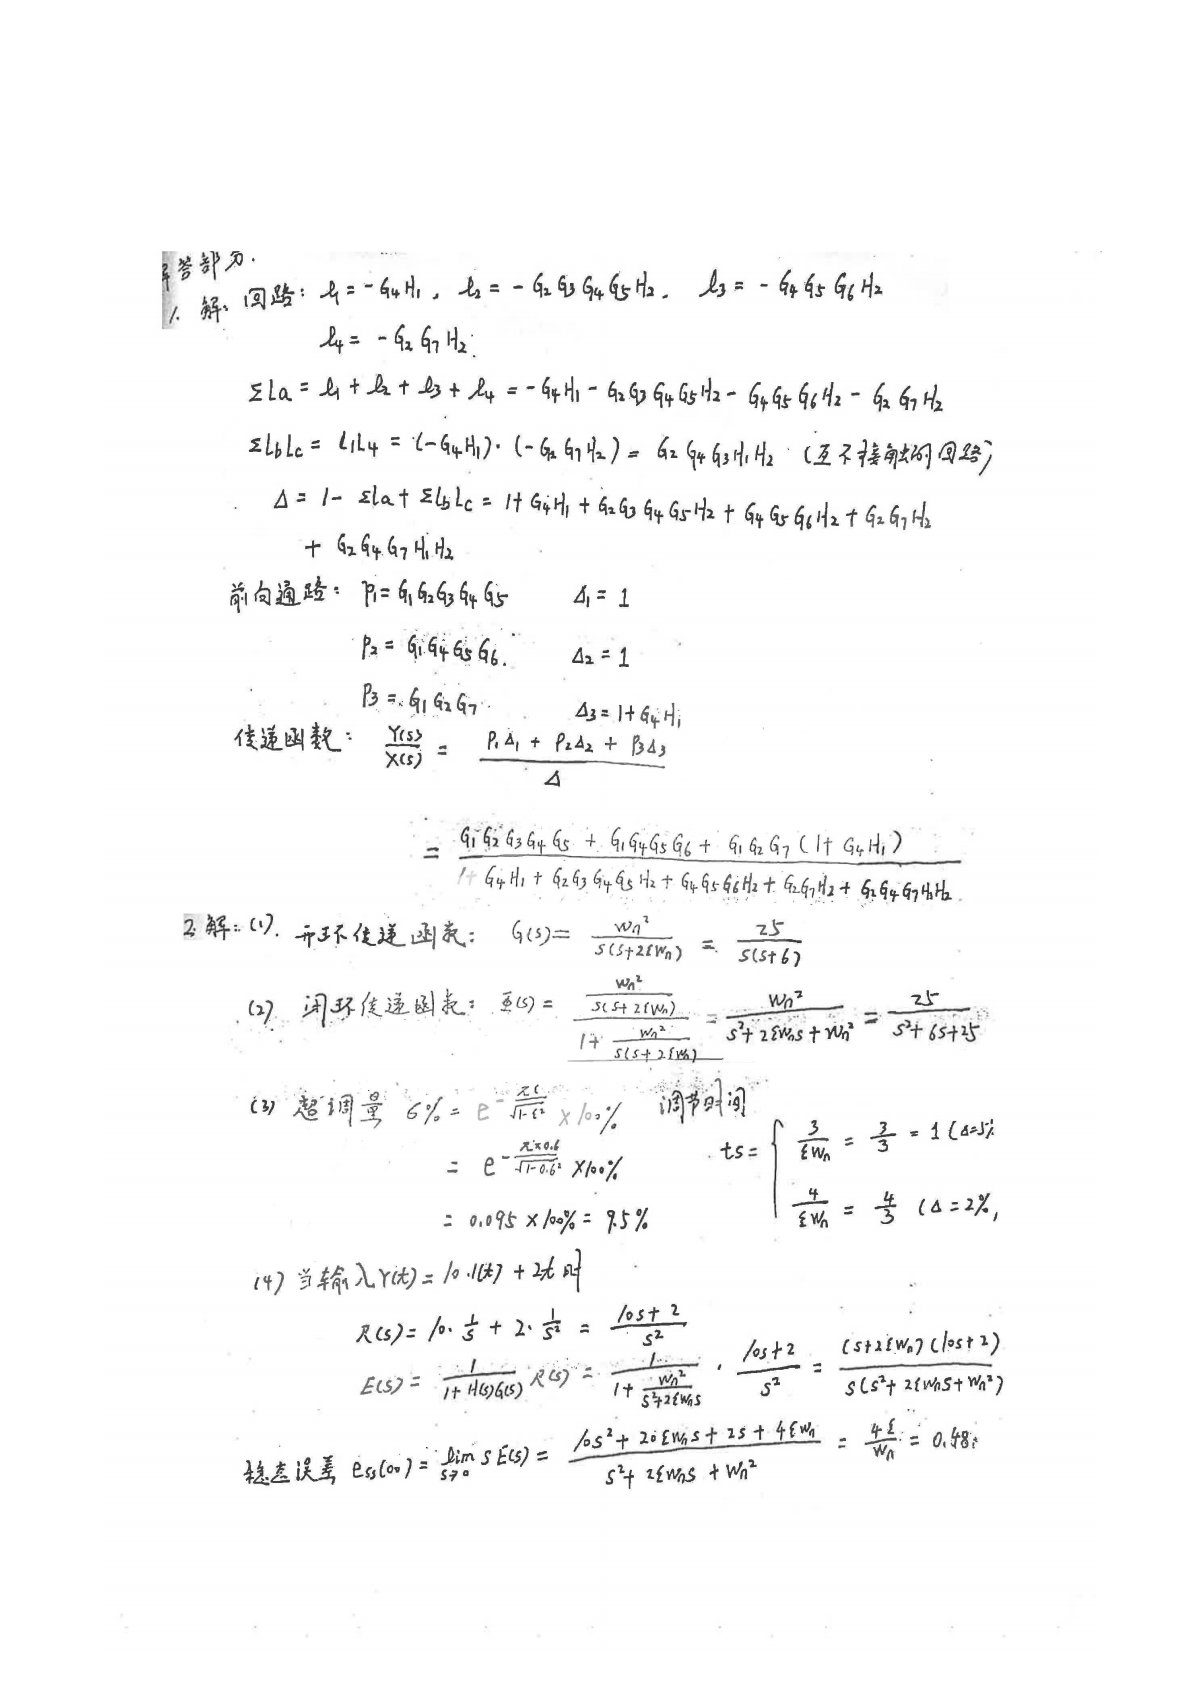 解答部分.
1. 解: 回路: l₁ = -G₄H₁, l₂ = -G₂G₃G₄G₅H₂, l₃ = -G₄G₅G₆H₂
l₄ = -G₂G₇H₂
Σla = l₁ + l₂ + l₃ + l₄ = -G₄H₁ - G₂G₃G₄G₅H₂ - G₄G₅G₆H₂ - G₂G₇H₂
ΣLbLc = L₁L₄ = (-G₄H₁)·(-G₂G₇H₂) = G₂G₄G₃H₁H₂ (互不接触的回路)
Δ = 1 - Σla + ΣLbLc = 1 + G₄H₁ + G₂G₃G₄G₅H₂ + G₄G₅G₆H₂ + G₂G₇H₂
+ G₂G₄G₇H₁H₂
前向通路: P₁ = G₁G₂G₃G₄G₅ Δ₁ = 1
P₂ = G₁G₄G₅G₆. Δ₂ = 1
P₃ = G₁G₂G₇ Δ₃ = 1 + G₄H₁
传递函数: Y(s)/X(s) = (P₁Δ₁ + P₂Δ₂ + P₃Δ₃)/Δ
= (G₁G₂G₃G₄G₅ + G₁G₄G₅G₆ + G₁G₂G₇(1 + G₄H₁))/(1 + G₄H₁ + G₂G₃G₄G₅H₂ + G₄G₅G₆H₂ + G₂G₇H₂ + G₂G₄G₇H₁H₂)
2. 解: (1). 开环传递函数: G(s) = Wn²/(s(s+2ξWn)) = 25/(s(s+6))
(2) 闭环传递函数: Φ(s) = (Wn²/(s(s+2ξWn)))/(1 + Wn²/(s(s+2ξWn))) = Wn²/(s²+2ξWns+Wn²) = 25/(s²+6s+25)
(3) 超调量 σ% = e^(-πξ/√(1-ξ²)) ×100% 调节时间
ts = { 3/(ξWn) = 3/3 = 1 (Δ=5%
= e^(-π×0.6/√(1-0.6²)) ×100%
4/(ξWn) = 4/3 (Δ=2%,
= 0.095 ×100% = 9.5%
(4) 当输入r(t) = 10·1(t) + 2t 时
R(s) = 10·1/s + 2·1/s² = (10s+2)/s²
E(s) = 1/(1+H(s)G(s)) R(s) = 1/(1 + Wn²/(s²+2ξWns)) · (10s+2)/s² = (s+2ξWn)(10s+2)/(s(s²+2ξWns+Wn²))
稳态误差 ess(∞) = lim s→0 sE(s) = (10s²+20ξWns+2s+4ξWn)/(s²+2ξWns+Wn²) = 4ξ/Wn = 0.48